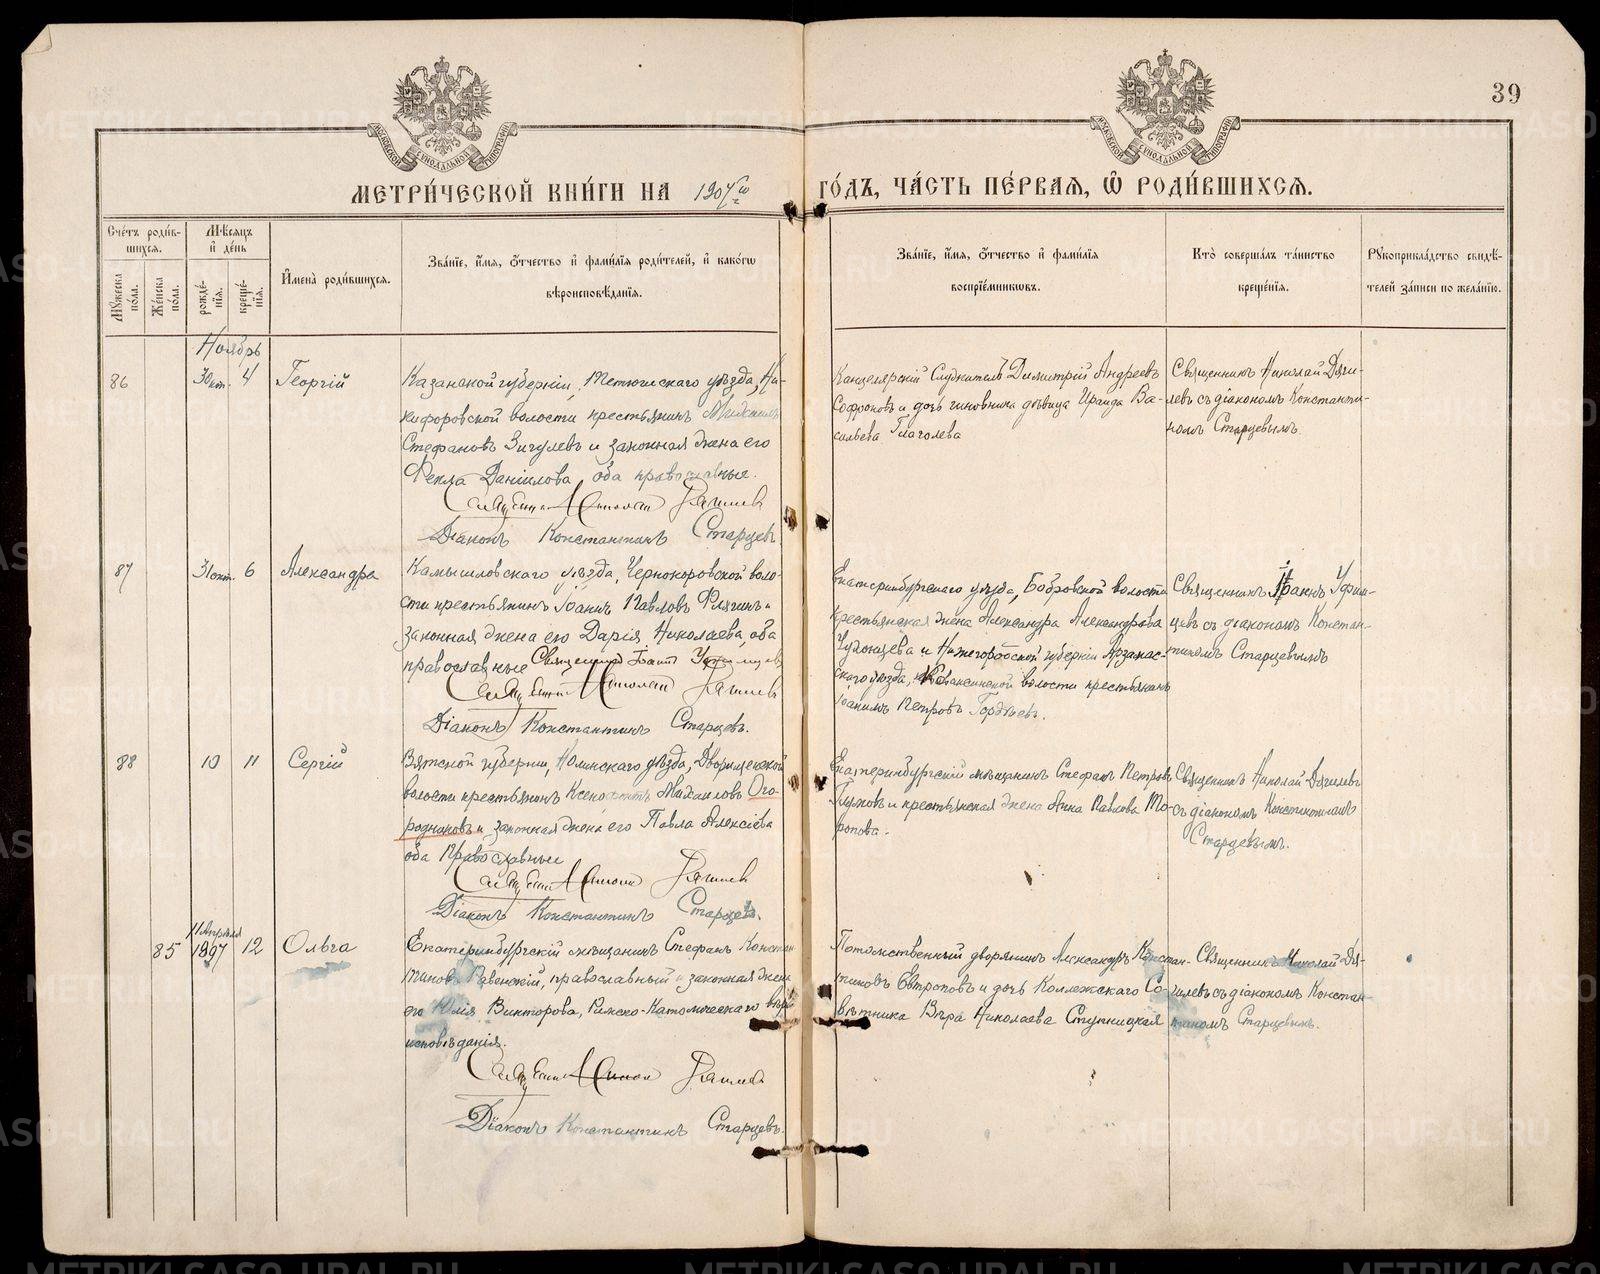 39
МЕТРИ́ЧЕСКОЙ КНИ́ГИ НА 1907 ГО́ДЪ, ЧА́СТЬ ПЕ́РВАЯ, Ѡ҆ РОДИ́ВШИХСЯ.
Сче́тъ роди́в-
шихся.
Мѣ́сяцъ
и҆ де́нь
Мꙋ́жеска по́ла.
Же́нска по́ла.
рожде́-
нїя.
креще́-
нїя.
И҆мена̀ роди́вшихся.
Зва́нїе, и҆́мя, о҆́тчество и҆ фами́лїя роди́телей, и҆ како́гѡ
вѣроисповѣ́данїя.
Зва́нїе, и҆́мя, о҆́тчество и҆ фами́лїя
воспрїе́мникѡвъ.
Кто̀ соверша́лъ та́инство
креще́нїя.
Рꙋкоприкла́дство свидѣ́-
телей за́писи по жела́нїю.
Ноябрь
86
30 окт.
4
Георгій
Казанской губерніи, Тетюшскаго уѣзда, Ни-
кифоровской волости крестьянинъ
Стефановъ Зигулевъ и законная жена его
Фекла Даніилова, оба православные.
Священникъ Николай
Діаконъ Константинъ Старцевъ.
Канцелярскій Служитель Димитрій Андреевъ
Софроновъ и дочь чиновника дѣвица Ираида Ва-
сильева Глаголева
Священникъ Николай Дяги-
левъ съ діакономъ Константи-
номъ Старцевымъ.
87
31 окт.
6
Александра
Камышловскаго уѣзда, Чернокоровской воло-
сти крестьянинъ Іоаннъ Павловъ и
законная жена его Дарія Николаева, оба
православные Священникъ
Священникъ Николай
Діаконъ Константинъ Старцевъ.
Екатеринбургскаго уѣзда, Бобровской волости
крестьянская жена Александра Александрова
и Нижегородской губерніи Арзамас-
скаго уѣзда, волости крестьянинъ
Петровъ Гордѣевъ.
Священникъ Іоаннъ Уфим-
цевъ съ діакономъ Констан-
тиномъ Старцевымъ
88
10
11
Сергій
Вятской губерніи, Нолинскаго уѣзда,
волости крестьянинъ Ксенофонтъ Михаиловъ Ого-
родниковъ и законная жена его Павла Алексіева
оба Православные
Священникъ Николай
Діаконъ Константинъ Старцевъ.
Екатеринбургскій мѣщанинъ Стефанъ Петровъ
Глуховъ и крестьянская жена Анна Павлова То-
ропова.
Священникъ Николай Дягилевъ
съ діакономъ Константиномъ
Старцевымъ.
85
11 Апрѣля
1897
12
Ольга
Екатеринбургскій мѣщанинъ Стефанъ Констан-
тиновъ православный и законная жена
его Юлія Викторова, Римско-Католическаго вѣро-
исповѣданія.
Священникъ Николай
Діаконъ Константинъ Старцевъ.
Потомственный дворянинъ Александръ Констан-
тиновъ Евтроповъ и дочь Коллежскаго Со-
вѣтника Вѣра Николаева Ступницкая
Священникъ Николай Дя-
гилевъ съ діакономъ Констан-
тиномъ Старцевымъ.
METRIKI.GASO-URAL.RU